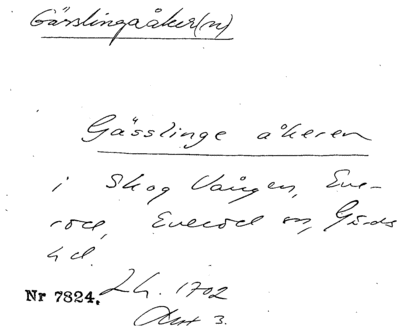 Gässlingaåker(n)
Gässlinge åkeren
i Skog Vången, Eve-
röd, Everöd sn, Gärds
hd.
Nr 7824. Lh. 1702
Akt 3.